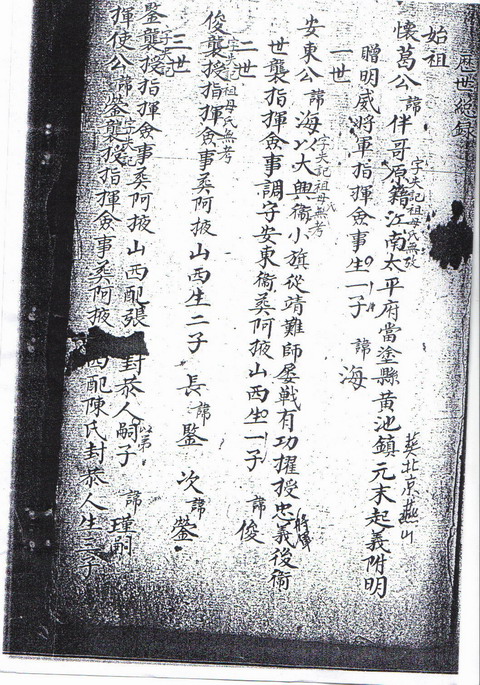 歷世總錄
始祖
懷葛公諱伴哥原籍江南太平府當塗縣黃池鎮元末起義附明
字失記祖母氏無攷
葬北京燕山
贈明威將軍指揮僉事生一子 諱海
一世
安東公諱海以大興衛小旗從靖難師屡戰有功擢授忠義後衛
字失記祖母無考
世襲指揮僉事調守安東衛葬阿掖山西生一子 諱俊
二世
俊襲授指揮僉事葬阿掖山西生二子 長諱鑒 次諱蓥
字失記祖母氏無考
三世
鑒襲授指揮僉事葬阿掖山西配張 封恭人嗣子 諱瑾嗣
字失記
以弟
揮使公諱蓥襲授指揮僉事葬阿掖 西配陳氏封恭人生三子
字失記